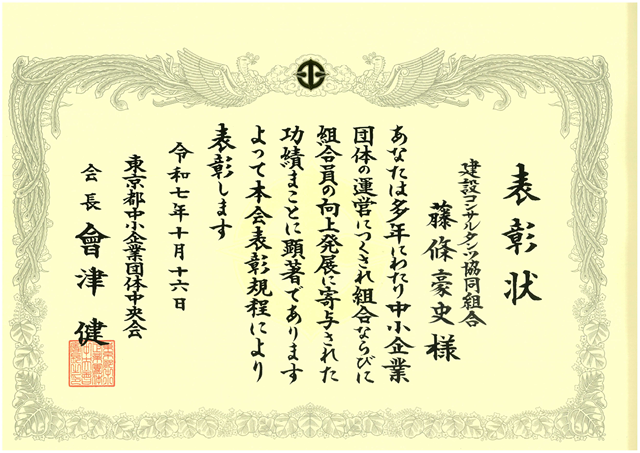 表彰状
建設コンサルタンツ協同組合
藤條豪史様
あなたは多年にわたり中小企業
団体の運営につくされ組合ならびに
組合員の向上発展に寄与された
功績まことに顕著であります
よって本会表彰規程により
表彰します
令和七年十月十六日
東京都中小企業団体中央会
会長 會津健